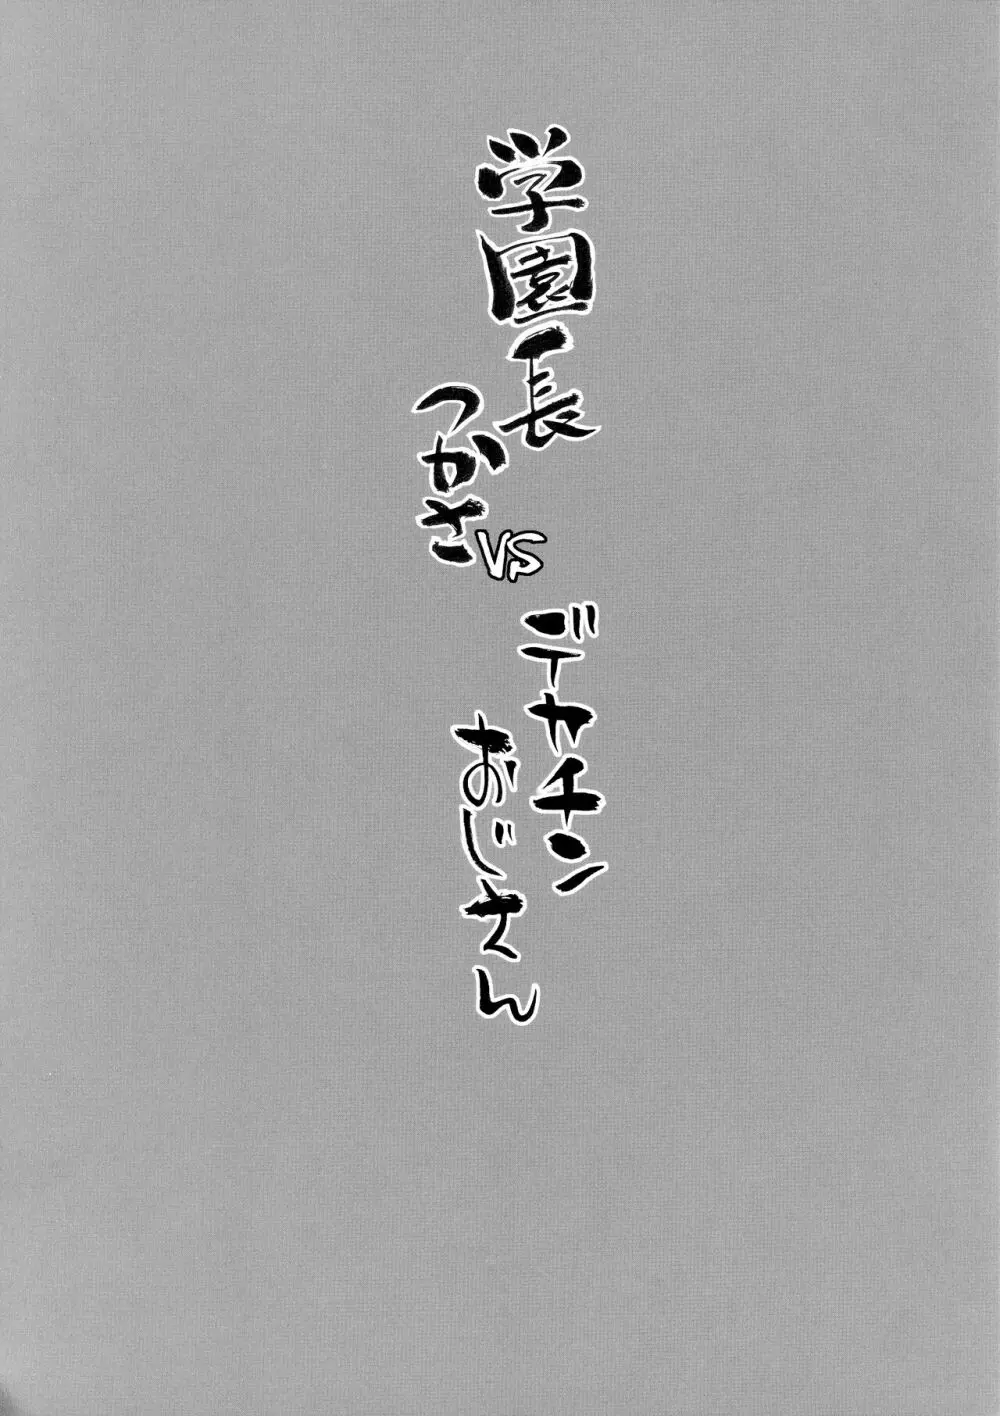 学園長
つかさ
VS
デカチン
おじさん